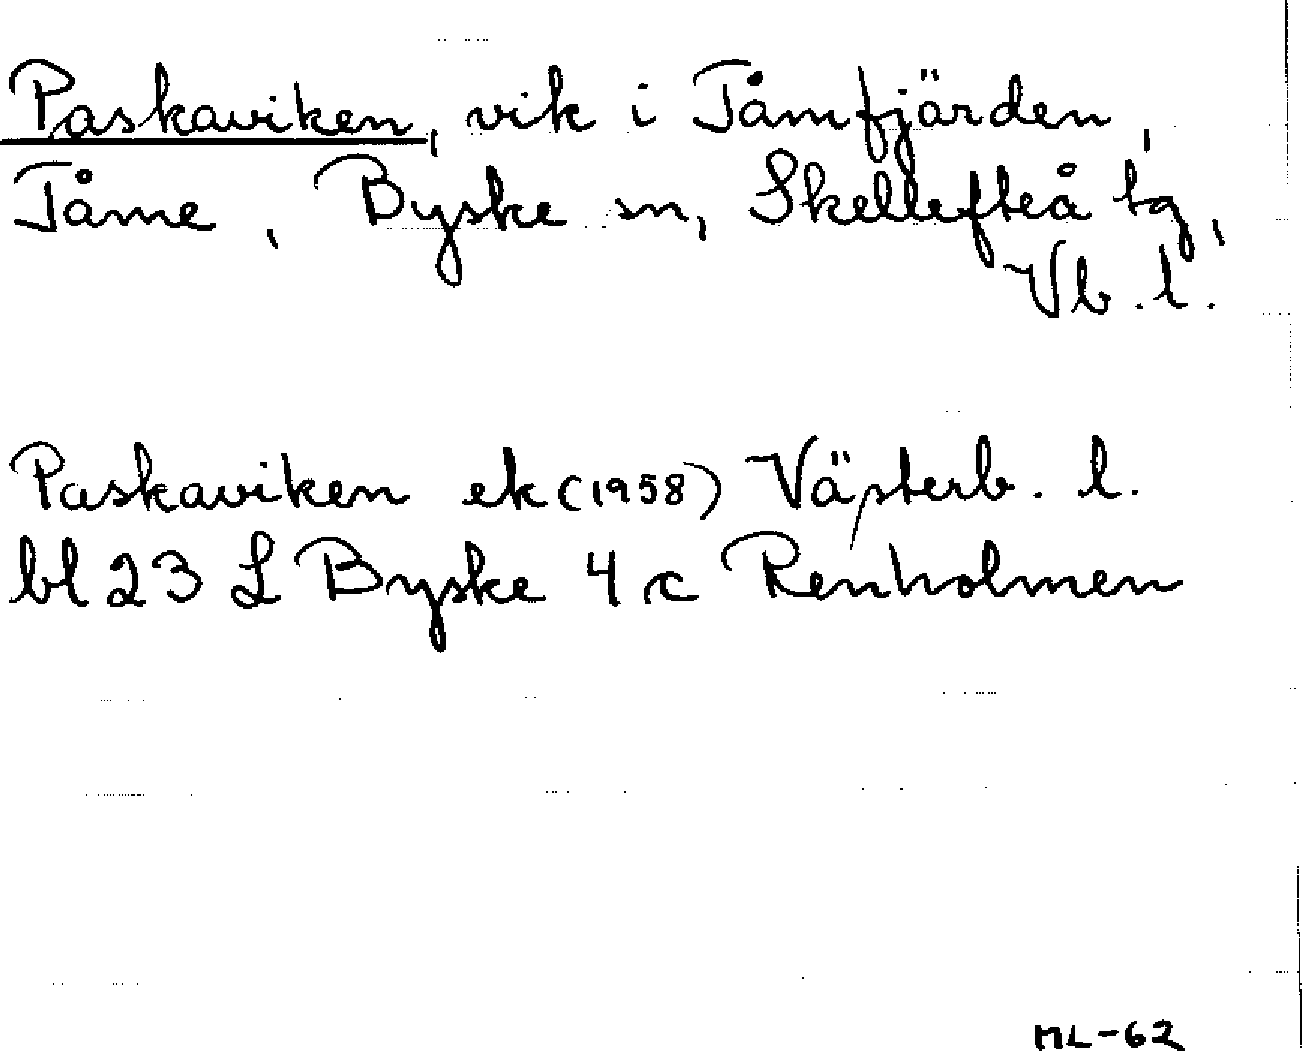 Paskaviken, vik i Tåmfjärden,
Tåme, Byske sn, Skellefteå tg,
Vb. l.
Paskaviken ek (1958) Västerb. l.
bl 23 L Byske 4 c Renholmen
ML-62